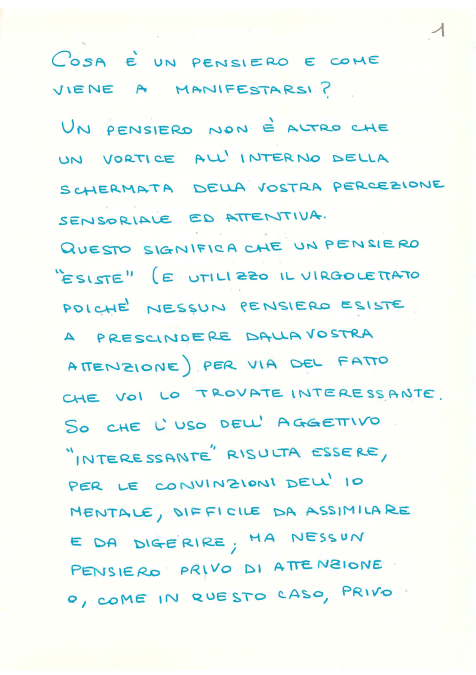 1
COSA È UN PENSIERO E COME
VIENE A MANIFESTARSI?
UN PENSIERO NON È ALTRO CHE
UN VORTICE ALL'INTERNO DELLA
SCHERMATA DELLA VOSTRA PERCEZIONE
SENSORIALE ED ATTENTIVA.
QUESTO SIGNIFICA CHE UN PENSIERO
"ESISTE" (E UTILIZZO IL VIRGOLETTATO
POICHÉ NESSUN PENSIERO ESISTE
A PRESCINDERE DALLA VOSTRA
ATTENZIONE) PER VIA DEL FATTO
CHE VOI LO TROVATE INTERESSANTE.
SO CHE L'USO DELL'AGGETTIVO
"INTERESSANTE" RISULTA ESSERE,
PER LE CONVINZIONI DELL'IO
MENTALE, DIFFICILE DA ASSIMILARE
E DA DIGERIRE; MA NESSUN
PENSIERO PRIVO DI ATTENZIONE
O, COME IN QUESTO CASO, PRIVO